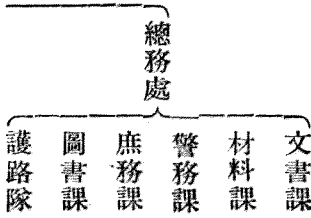 總務處
文書課
材料課
警務課
庶務課
圖書課
護路隊